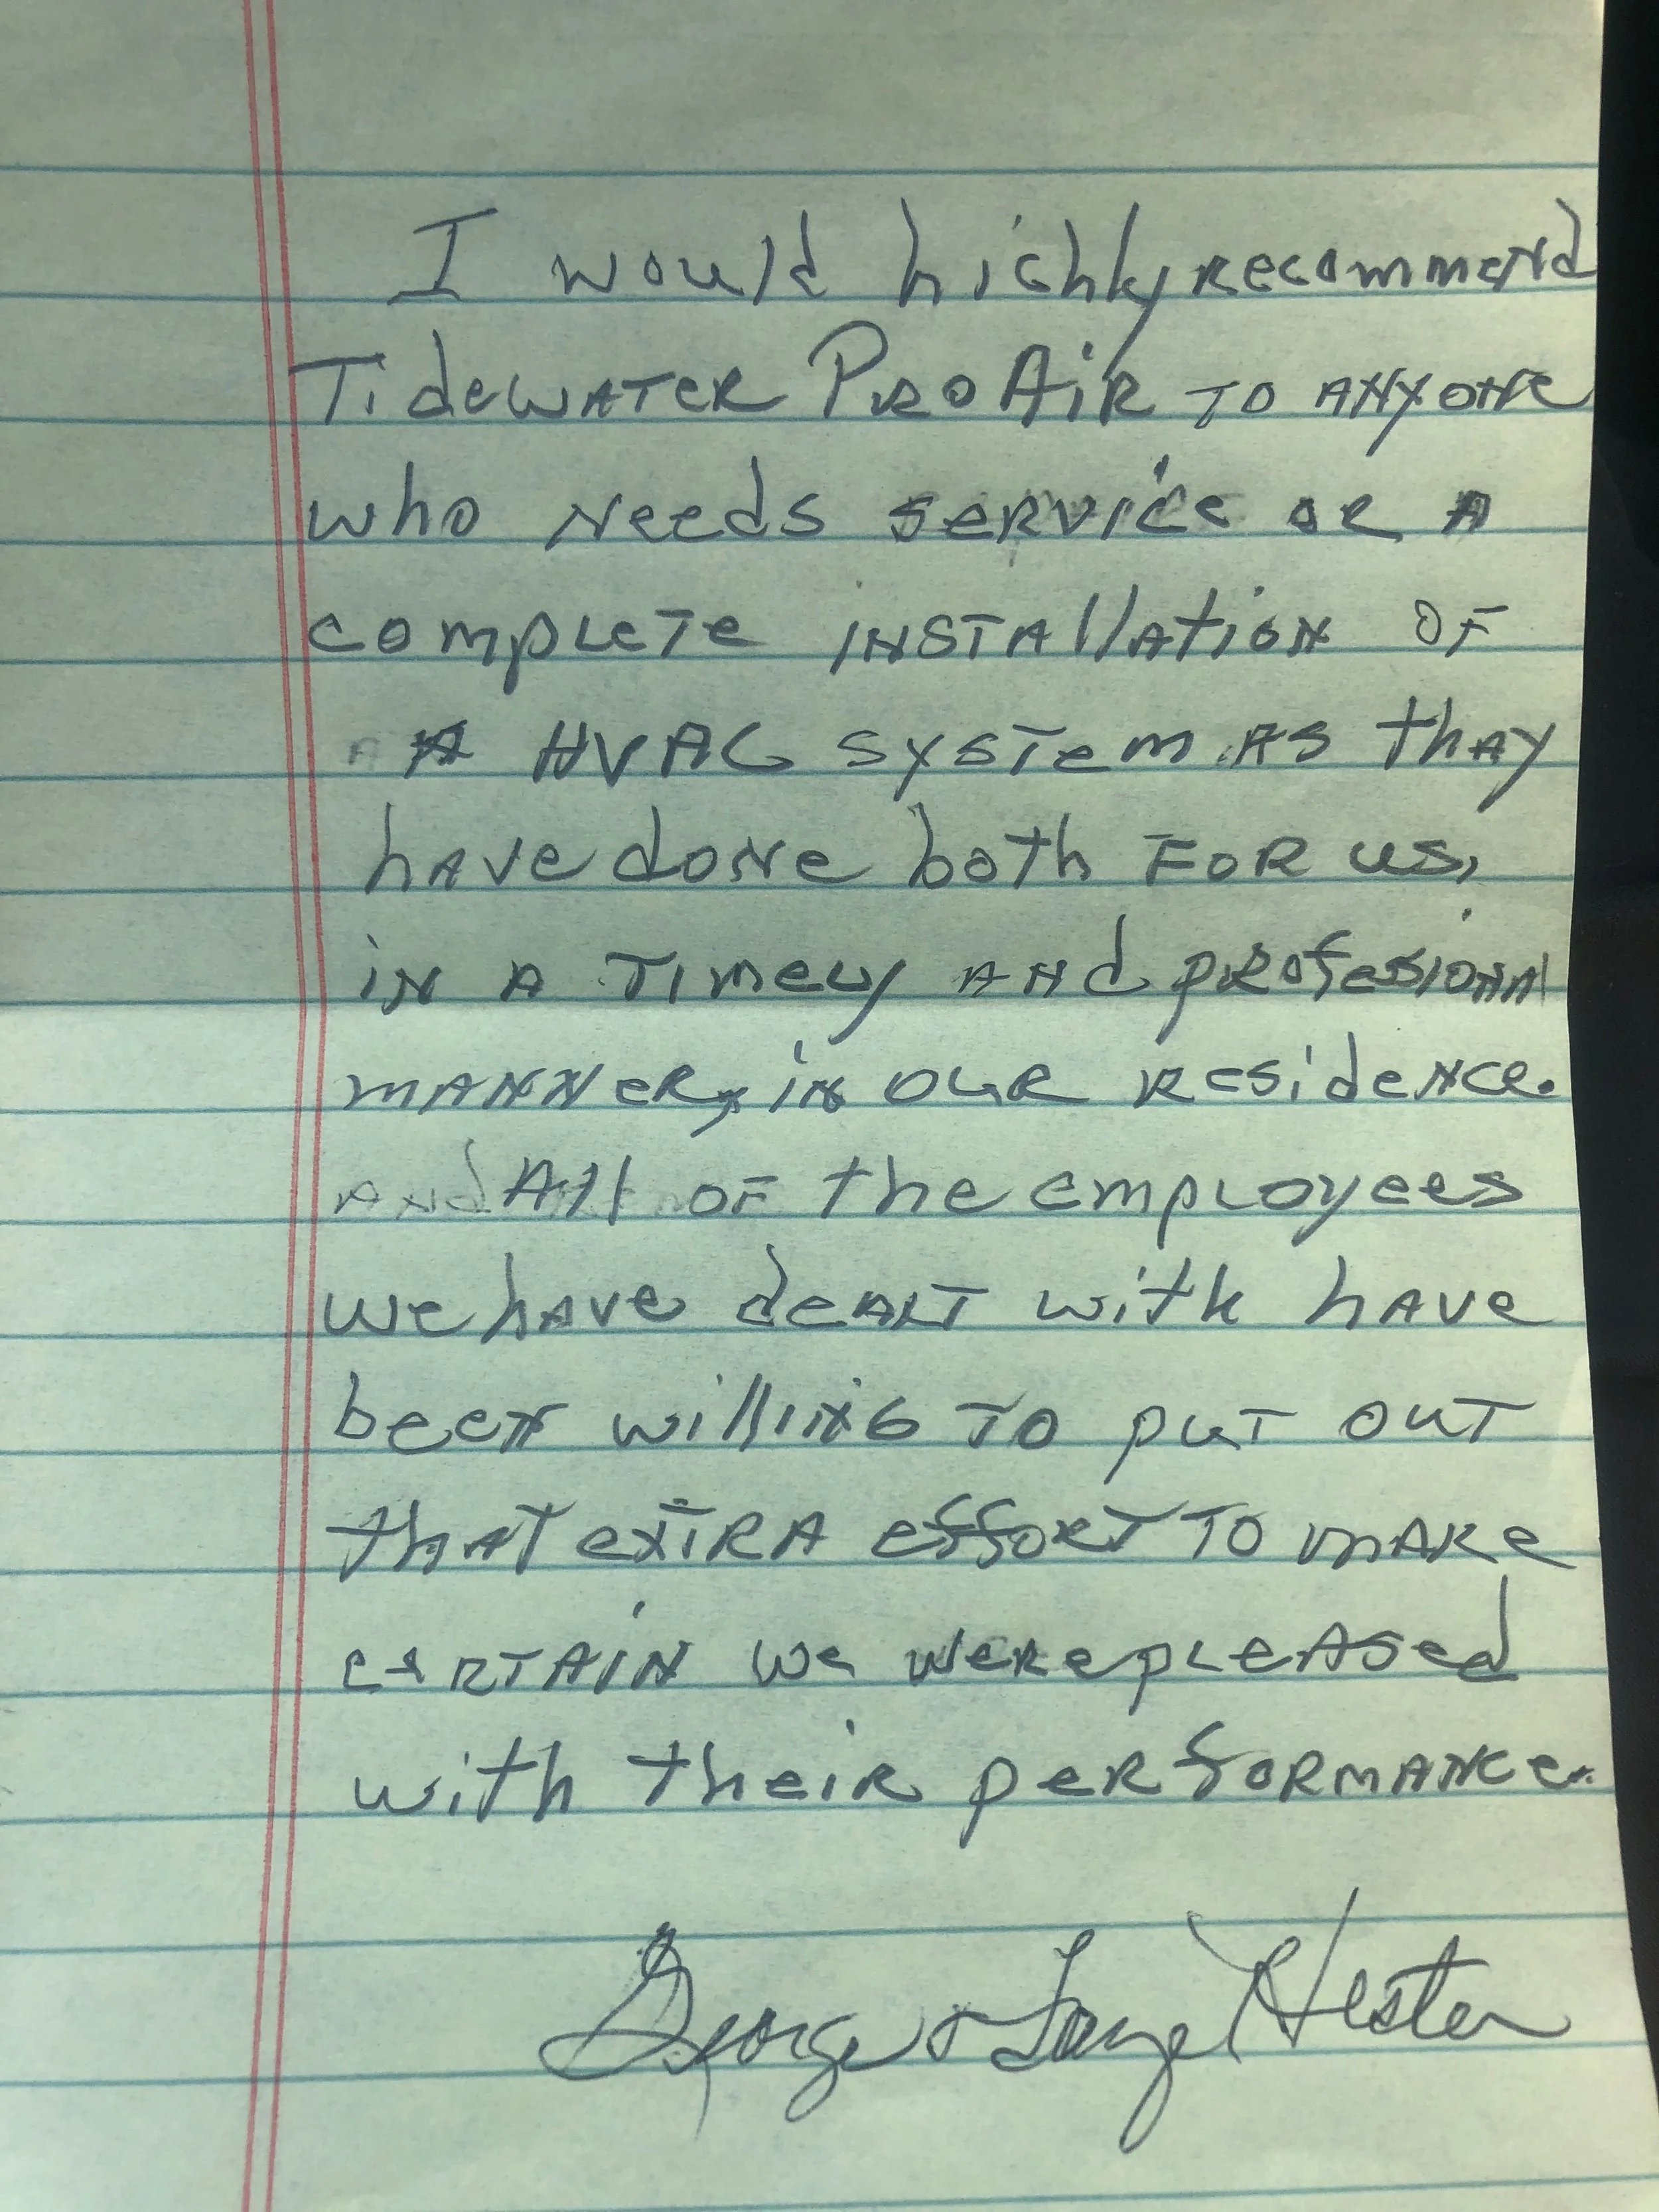 I would hichly recommend
Tidewater Pro Air to anyone
who needs service or a
complete installation of
A HVAC system as thay
have done both for us,
in a timely and profesional
manner, in our residence.
and All of the employees
we have dealt with have
been willing to put out
that extra effort to make
certain we were pleased
with their performance.
George & Faye Hester